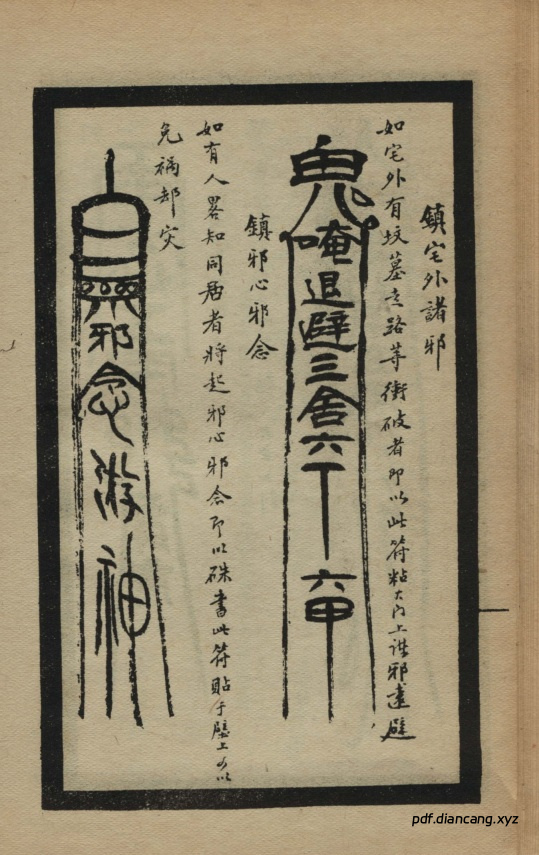 鎮宅外諸邪
如宅外有坟墓走路等衝破者即以此符粘大门上诸邪遠避
鬼唵退避三舍六丁六甲
鎮邪心邪念
如有人畧知同居者將起邪心邪念即以硃書此符貼于壁上可以
免禍却灾
無邪念游神
pdf.diancang.xyz